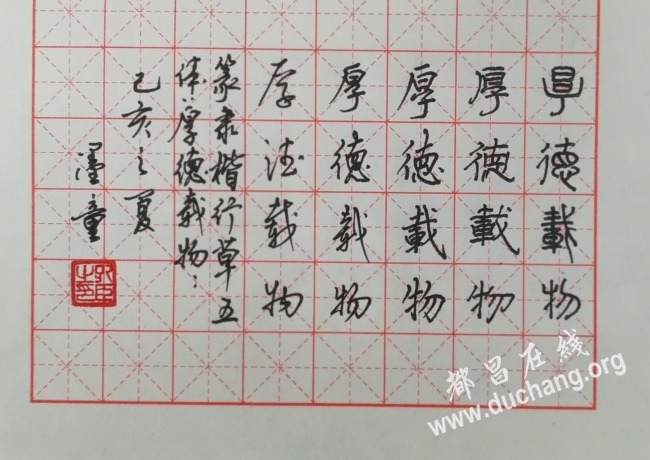 厚德載物
厚德載物
厚德載物
厚德载物
厚德载物
篆隶楷行草五
体：厚德载物：
己亥之夏
墨童
都昌在线
www.duchang.org